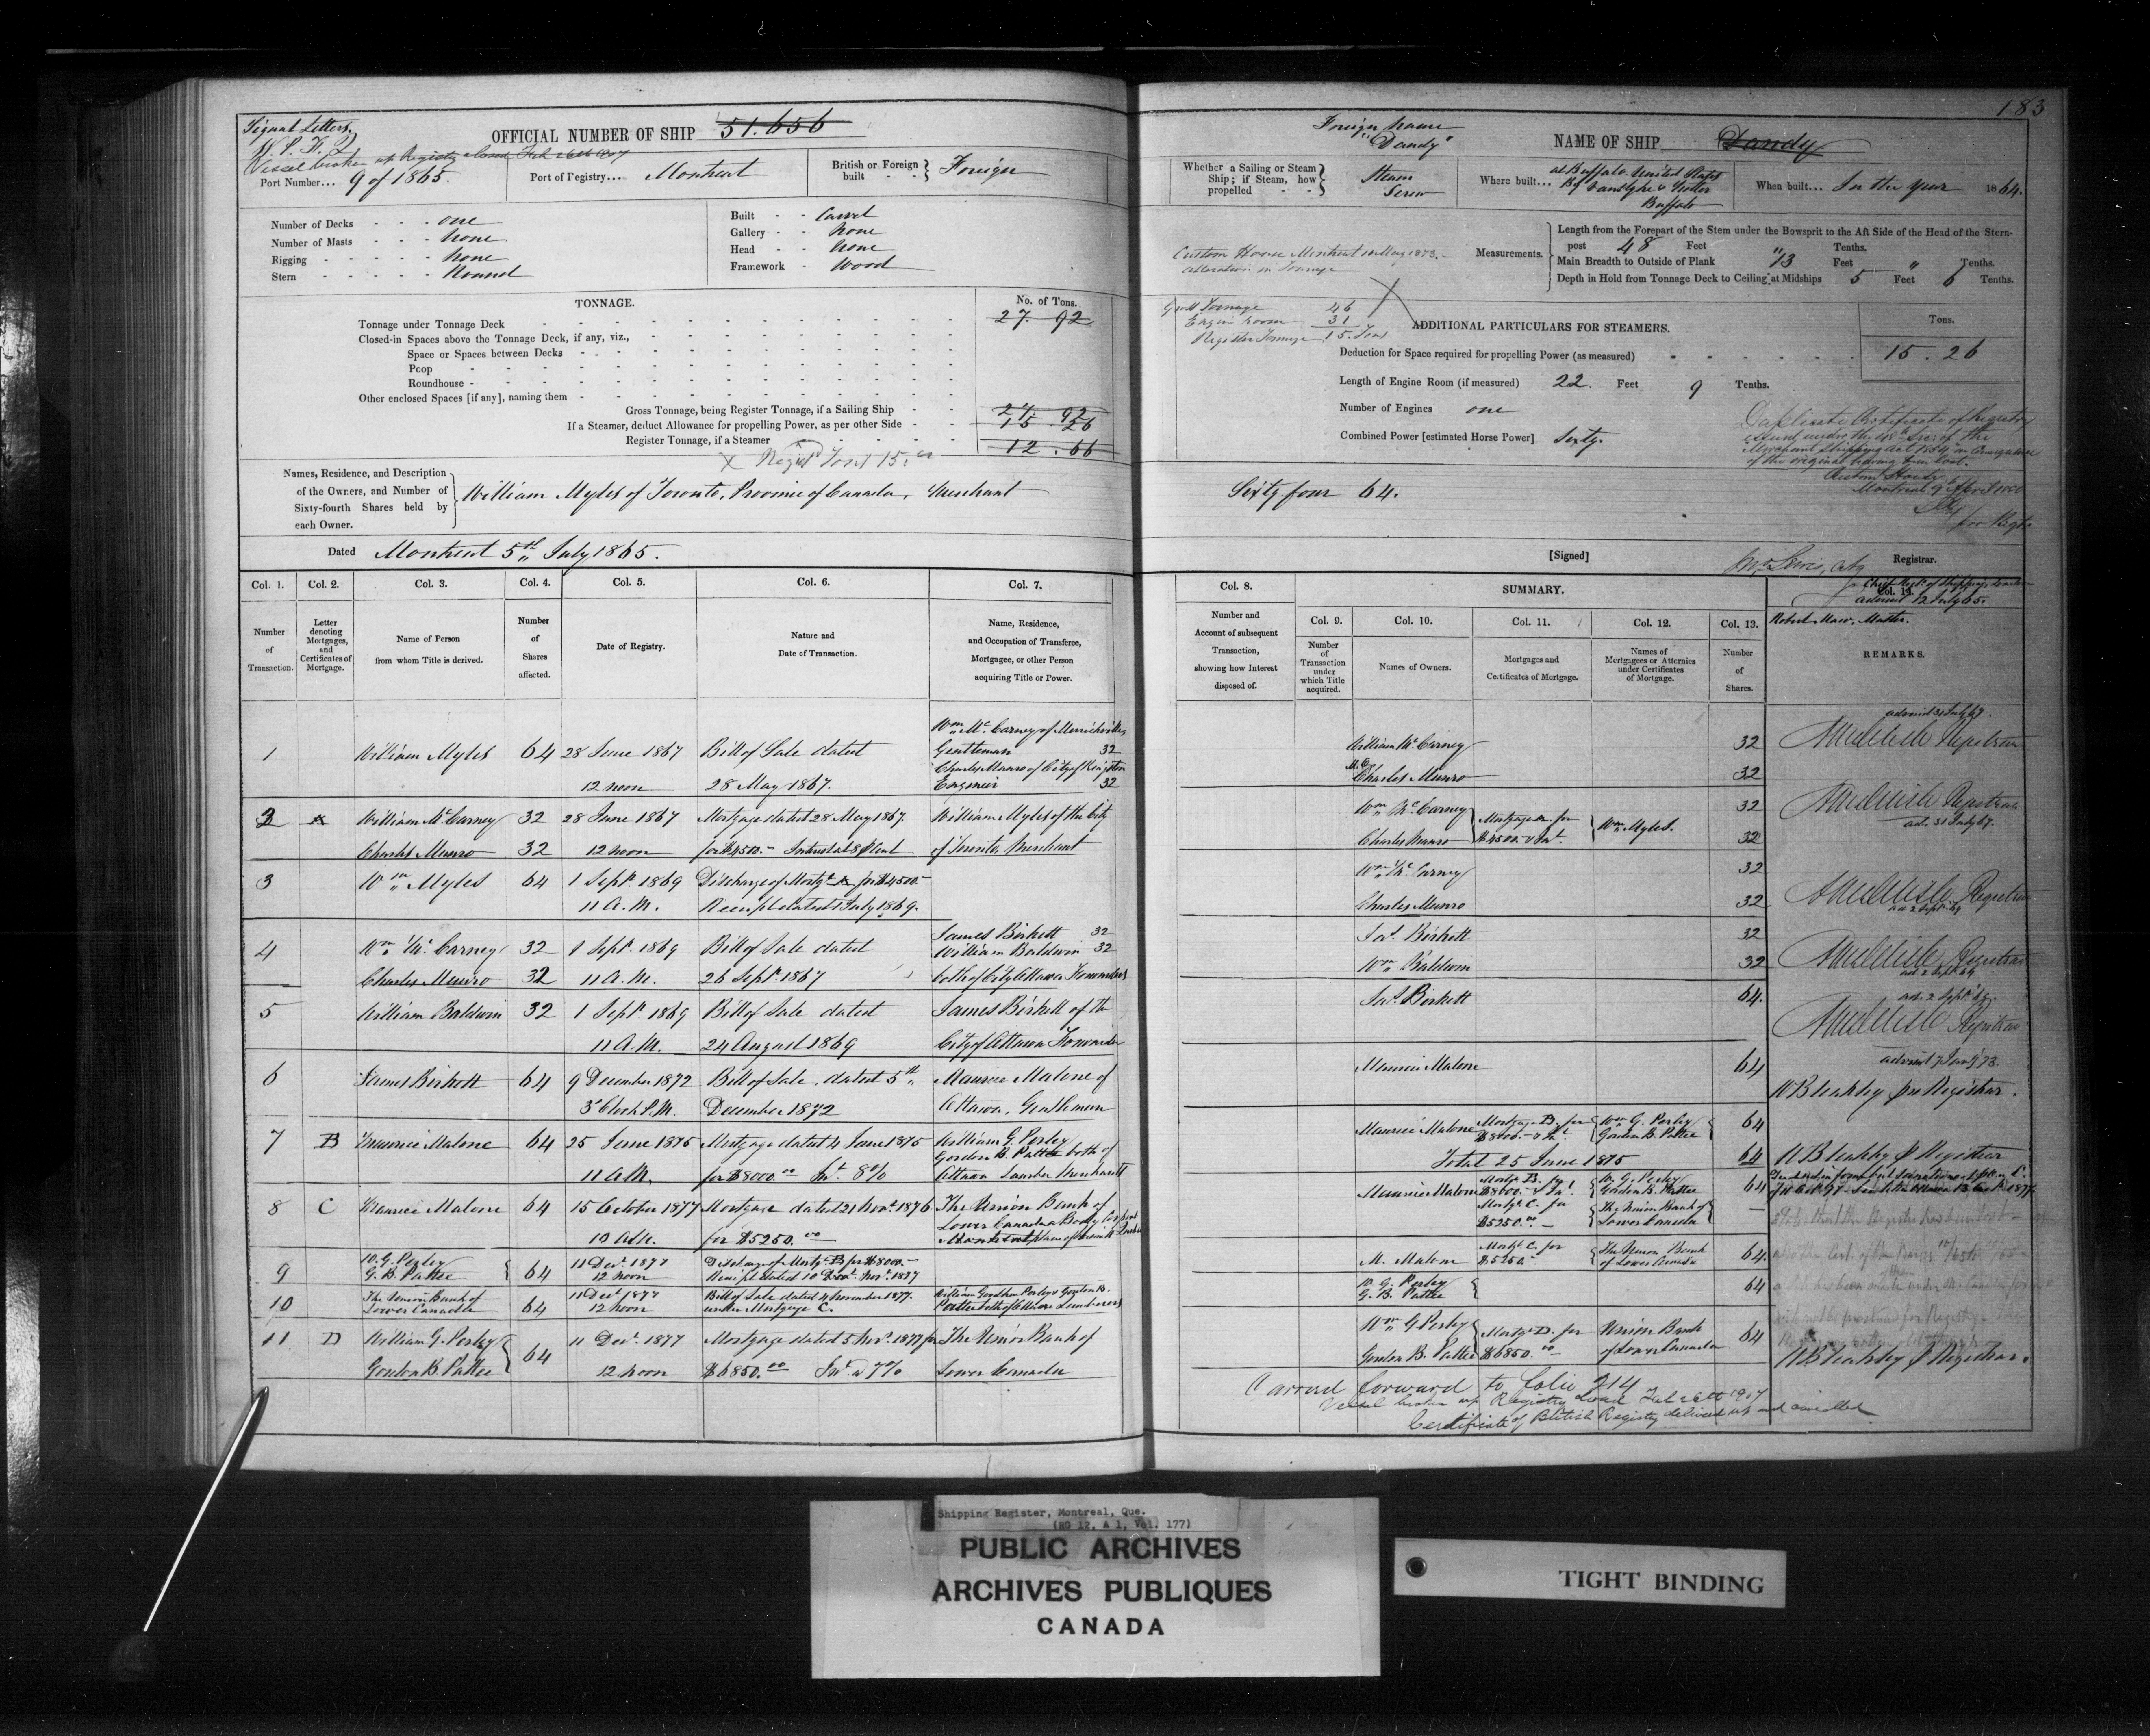 183
Signal Letters
OFFICIAL NUMBER OF SHIP 51.656
Vessel broken up Registry closed Feb 26th 1907
Port Number... 9 of 1865.
Port of Registry... Montreal
British or Foreign built - - Foreign
Number of Decks - - - one
Number of Masts - - - none
Rigging - - - - none
Stern - - - - Round
Built - - Carvel
Gallery - - None
Head - - None
Framework - Wood
TONNAGE.
No. of Tons.
Tonnage under Tonnage Deck 27. 92
Closed-in Spaces above the Tonnage Deck, if any, viz.,
Space or Spaces between Decks
Poop
Roundhouse
Other enclosed Spaces [if any], naming them
Gross Tonnage, being Register Tonnage, if a Sailing Ship 27. 92
If a Steamer, deduct Allowance for propelling Power, as per other Side 15. 26
Register Tonnage, if a Steamer 12. 66
Names, Residence, and Description
of the Owners, and Number of
Sixty-fourth Shares held by
each Owner.
William Myles of Toronto, Province of Canada, Merchant
Dated Montreal 5th July 1865.
Foreign name
"Dandy"
NAME OF SHIP Dandy
Whether a Sailing or Steam
Ship; if Steam, how
propelled - -
Steam
Screw
Where built... at Buffalo United States
Buffalo
When built... In the year 1864.
Custom House Montreal 10 May 1873.
alteration in Tonnage
Measurements.
Length from the Forepart of the Stem under the Bowsprit to the Aft Side of the Head of the Stern-
post 48 Feet " Tenths.
Main Breadth to Outside of Plank 13 Feet " Tenths.
Depth in Hold from Tonnage Deck to Ceiling at Midships 5 Feet 6 Tenths.
Gross Tonnage 46
Engine room 31
Register Tonnage 15 Tons
ADDITIONAL PARTICULARS FOR STEAMERS.
Tons.
Deduction for Space required for propelling Power (as measured) 15. 26
Length of Engine Room (if measured) 22. Feet 9 Tenths.
Number of Engines one
Combined Power [estimated Horse Power] Sixty.
Duplicate Certificate of Registry
of the original having been lost.
Custom House
Montreal 9th April 1880
for Regr
Sixty four 64.
[Signed]
Registrar.
Col. 1.
Number
of
Transaction.
Col. 2.
Letter
denoting
Mortgages,
and
Certificates of
Mortgage.
Col. 3.
Name of Person
from whom Title is derived.
Col. 4.
Number
of
Shares
affected.
Col. 5.
Date of Registry.
Col. 6.
Nature and
Date of Transaction.
Col. 7.
Name, Residence,
and Occupation of Transferee,
Mortgagee, or other Person
acquiring Title or Power.
Col. 8.
Number and
Account of subsequent
Transaction,
showing how Interest
disposed of.
SUMMARY.
Col. 9.
Number
of
Transaction
under
which Title
acquired.
Col. 10.
Names of Owners.
Col. 11.
Mortgages and
Certificates of Mortgage.
Col. 12.
Names of
Mortgagees or Attornies
under Certificates
of Mortgage.
Col. 13.
Number
of
Shares.
Col. 14.
advised 12 July 65.
Robert Maw, Master.
REMARKS.
1 William Myles 64 28 June 1867 Bill of Sale dated
12 noon 28 May 1867.
Wm McCarney of Merrickville
Gentleman 32
Charles Munro of City of Kingston
Engineer 32
William McCarney 32
Charles Munro 32
advised 31 July 67.
Registrar
2 A William McCarney 32 28 June 1867 Mortgage dated 28 May 1867. William Myles of the City
Charles Munro 32 12 noon for $4500.- Interest at 8 p Cent of Toronto, Merchant
Wm McCarney 32
Charles Munro 32
Mortgage A for
$4500 & Int.
Wm Myles.
Registrar
ad. 31 July 67.
3 Wm Myles 64 1 Sept 1869 Discharge of Mortg A for $4500.-
11 A.M. Receipt dated 1 July 1869.
Wm McCarney 32
Charles Munro 32
Registrar
ad 2 Sept 69
4 Wm McCarney 32 1 Sept 1869 Bill of Sale dated
Charles Munro 32 11 A.M. 26 Sept 1867
James Birkett 32
William Baldwin 32
both of City Ottawa Forwarders
Jas. Birkett 32
Wm Baldwin 32
Registrar
ad 2 Sept 69
5 William Baldwin 32 1 Sept 1869 Bill of Sale dated James Birkett of the
11 A.M. 24 August 1869 City of Ottawa Forwarder
Jas. Birkett 64.
ad. 2 Sept 69.
Registrar
6 James Birkett 64 9 December 1872 Bill of Sale, dated 5th Maurice Malone of
3 o'Clock P.M. December 1872 Ottawa, Gentleman
Maurice Malone 64
W B Leakley p Registrar.
7 B Maurice Malone 64 25 June 1875 Mortgage dated 4 June 1875
11 A.M. for $8000.00 Int. 8%
William G. Perley
Gordon B. Pattee both of
Ottawa Lumber Merchants
Maurice Malone Mortgage B. for
$8000.- & Int
Wm G. Perley
Gordon B. Pattee 64
Total 25 June 1875 64
8 C Maurice Malone 64 15 October 1877 Mortgage dated 21 Nov. 1876 The Union Bank of
10 A.M. for $5250.00
Maurice Malone Mortg. B. for
$8000.- & Int.
W. G. Perley
Gordon B. Pattee 64
Mortg. C. for
$5250.00
The Union Bank of
Lower Canada
9 W. G. Perley
G. B. Pattee 64 11 Dec. 1877 Discharge of Mortg. B for $8000.-
12 noon
M. Malone Mortg. C. for
$5250.
The Union Bank
of Lower Canada 64.
10 The Union Bank of
Lower Canada 64 11 Dec. 1877 Bill of Sale dated 4 November 1877.
12 noon under Mortgage C.
William Goodhue Perley & Gordon B.
Pattee both of Ottawa Lumberers
W. G. Perley
G. B. Pattee 64
11 D William G. Perley 64 11 Dec. 1877 Mortgage dated 5 Nov. 1877 for The Union Bank of
Gordon B. Pattee 12 noon $6850.00 Int. @ 7% Lower Canada
Wm G Perley
Gordon B. Pattee Mortg. D. for
$6850.00
Union Bank
of Lower Canada 64
W B Leakley p Registrar.
Carried forward to folio 214
Vessel broken up Registry closed Feb 26th 1907
Certificate of British Registry delivered up and cancelled
Shipping Register, Montreal, Que.
(RG 12, A 1, Vol. 177)
PUBLIC ARCHIVES
ARCHIVES PUBLIQUES
CANADA
TIGHT BINDING